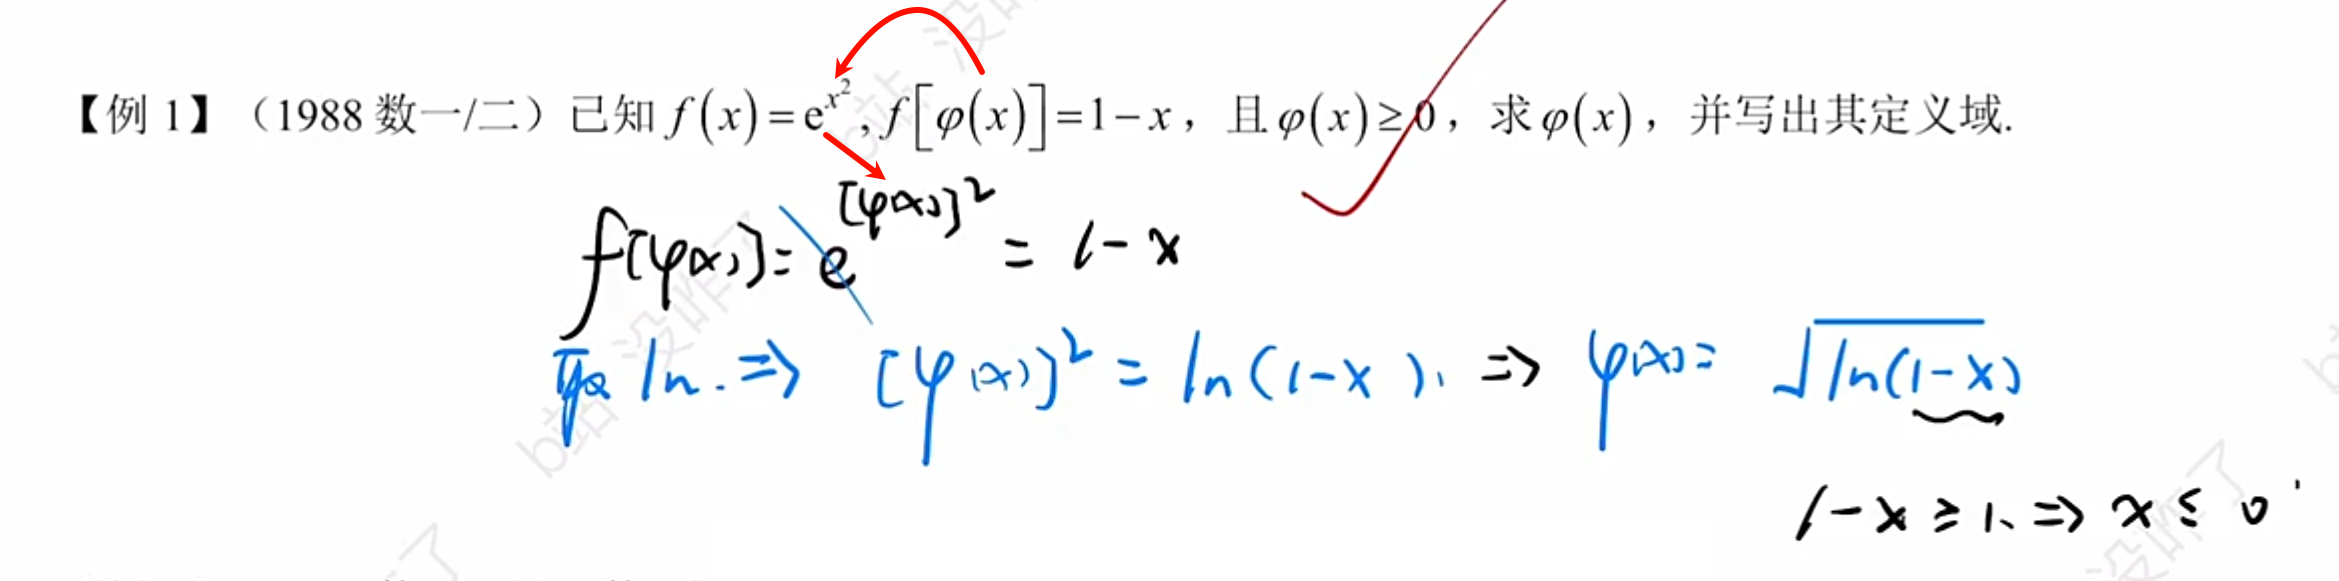 【例 1】（1988 数一/二）已知 f(x)=e^{x^2}, f[φ(x)]=1−x，且φ(x)≥0，求φ(x)，并写出其定义域.
f[φ(x)]=e^{[φ(x)]^2} = 1-x
取 ln. ⇒ [φ(x)]^2 = ln(1-x), ⇒ φ(x)= √ln(1-x)
1-x ≥ 1, ⇒ x ≤ 0
b站 没咋了